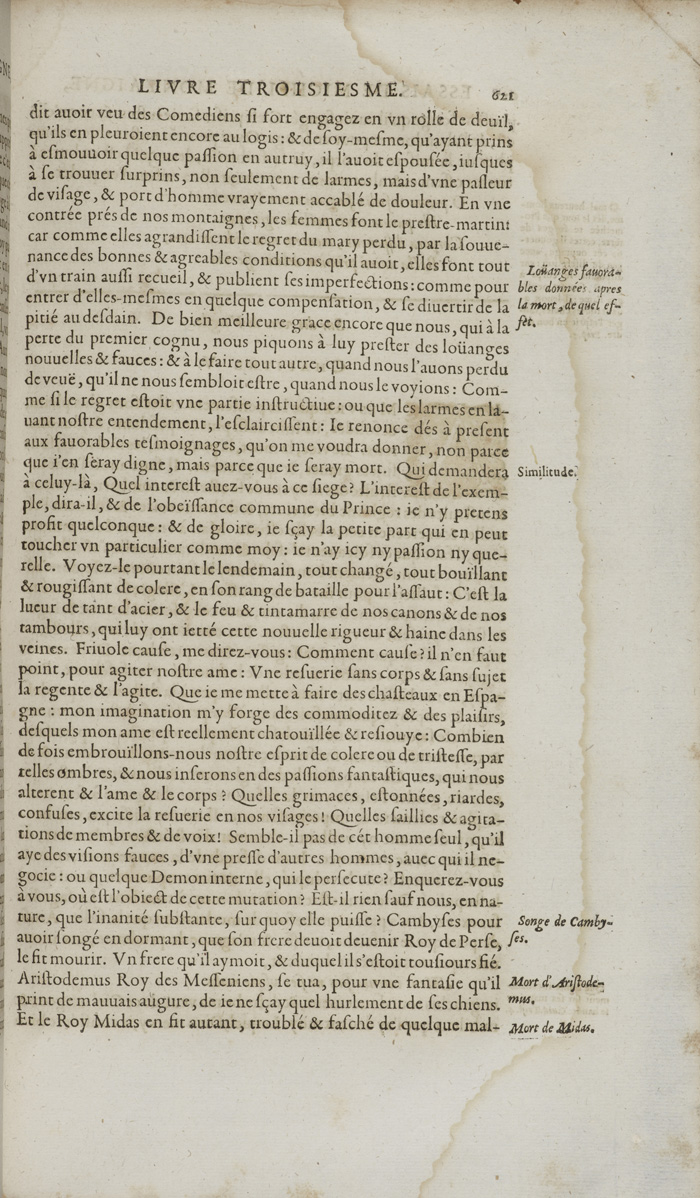 LIVRE TROISIESME. 621
dit auoir veu des Comediens ſi fort engagez en vn rôlle de deuïl,
qu'ils en pleuroient encore au logis: & de ſoy-meſme, qu'ayant prins
à eſmouuoir quelque paſſion en autruy, il l'auoit eſpouſée, iuſques
à ſe trouuer ſurprins, non ſeulement de larmes, mais d'vne paſleur
de viſage, & port d'homme vrayement accablé de douleur. En vne
contrée prés de nos montaignes, les femmes font le preſtre-martin:
car comme elles agrandiſſent le regret du mary perdu, par la ſouue-
nance des bonnes & agreables conditions qu'il auoit, elles font tout
d'vn train auſſi recueil, & publient ſes imperfections: comme pour
entrer d'elles-meſmes en quelque compenſation, & ſe diuertir de la
pitié au deſdain. De bien meilleure grace encore que nous, qui à la
perte du premier cognu, nous piquons à luy preſter des loüanges
nouuelles & fauces: & à le faire tout autre, quand nous l'auons perdu
de veuë, qu'il ne nous ſembloit eſtre, quand nous le voyions: Com-
me ſi le regret eſtoit vne partie inſtructiue: ou que les larmes en la-
uant noſtre entendement, l'eſclairciſſent: Ie renonce dés à preſent
aux fauorables teſmoignages, qu'on me voudra donner, non parce
que i'en ſeray digne, mais parce que ie ſeray mort. Qui demandera
à celuy-là, Quel intereſt auez-vous à ce ſiege? L'intereſt de l'exem-
ple, dira-il, & de l'obeïſſance commune du Prince: ie n'y pretens
profit quelconque: & de gloire, ie ſçay la petite part qui en peut
toucher vn particulier comme moy: ie n'ay icy ny paſſion ny que-
relle. Voyez-le pourtant le lendemain, tout changé, tout boüillant
& rougiſſant de colere, en ſon rang de bataille pour l'aſſaut: C'eſt la
lueur de tant d'acier, & le feu & tintamarre de nos canons & de nos
tambours, qui luy ont ietté cette nouuelle rigueur & haine dans les
veines. Friuole cauſe, me direz-vous: Comment cauſe? il n'en faut
point, pour agiter noſtre ame: Vne reſuerie ſans corps & ſans ſujet
la regente & l'agite. Que ie me mette à faire des chaſteaux en Eſpa-
gne: mon imagination m'y forge des commoditez & des plaiſirs,
deſquels mon ame eſt reellement chatouïllée & reſiouye: Combien
de fois embrouïllons-nous noſtre eſprit de colere ou de triſteſſe, par
telles ombres, & nous inſerons en des paſſions fantaſtiques, qui nous
alterent & l'ame & le corps? Quelles grimaces, eſtonnées, riardes,
confuſes, excite la reſuerie en nos viſages! Quelles ſaillies & agita-
tions de membres & de voix! Semble-il pas de cét homme ſeul, qu'il
aye des viſions fauces, d'vne preſſe d'autres hommes, auec qui il ne-
gocie: ou quelque Demon interne, qui le perſecute? Enquerez-vous
à vous, où eſt l'obiect de cette mutation? Eſt-il rien ſauf nous, en na-
ture, que l'inanité ſubſtante, ſur quoy elle puiſſe? Cambyſes pour
auoir ſongé en dormant, que ſon frere deuoit deuenir Roy de Perſe,
le fit mourir. Vn frere qu'il aymoit, & duquel il s'eſtoit touſiours fié.
Ariſtodemus Roy des Meſſeniens, ſe tua, pour vne fantaſie qu'il
print de mauuais augure, de ie ne ſçay quel hurlement de ſes chiens.
Et le Roy Midas en fit autant, troublé & faſché de quelque mal-
Loüanges fauora-
bles données apres
la mort, de quel ef-
fèt.
Similitude.
Songe de Camby-
ſes.
Mort d'Ariſtode-
mus.
Mort de Midas.